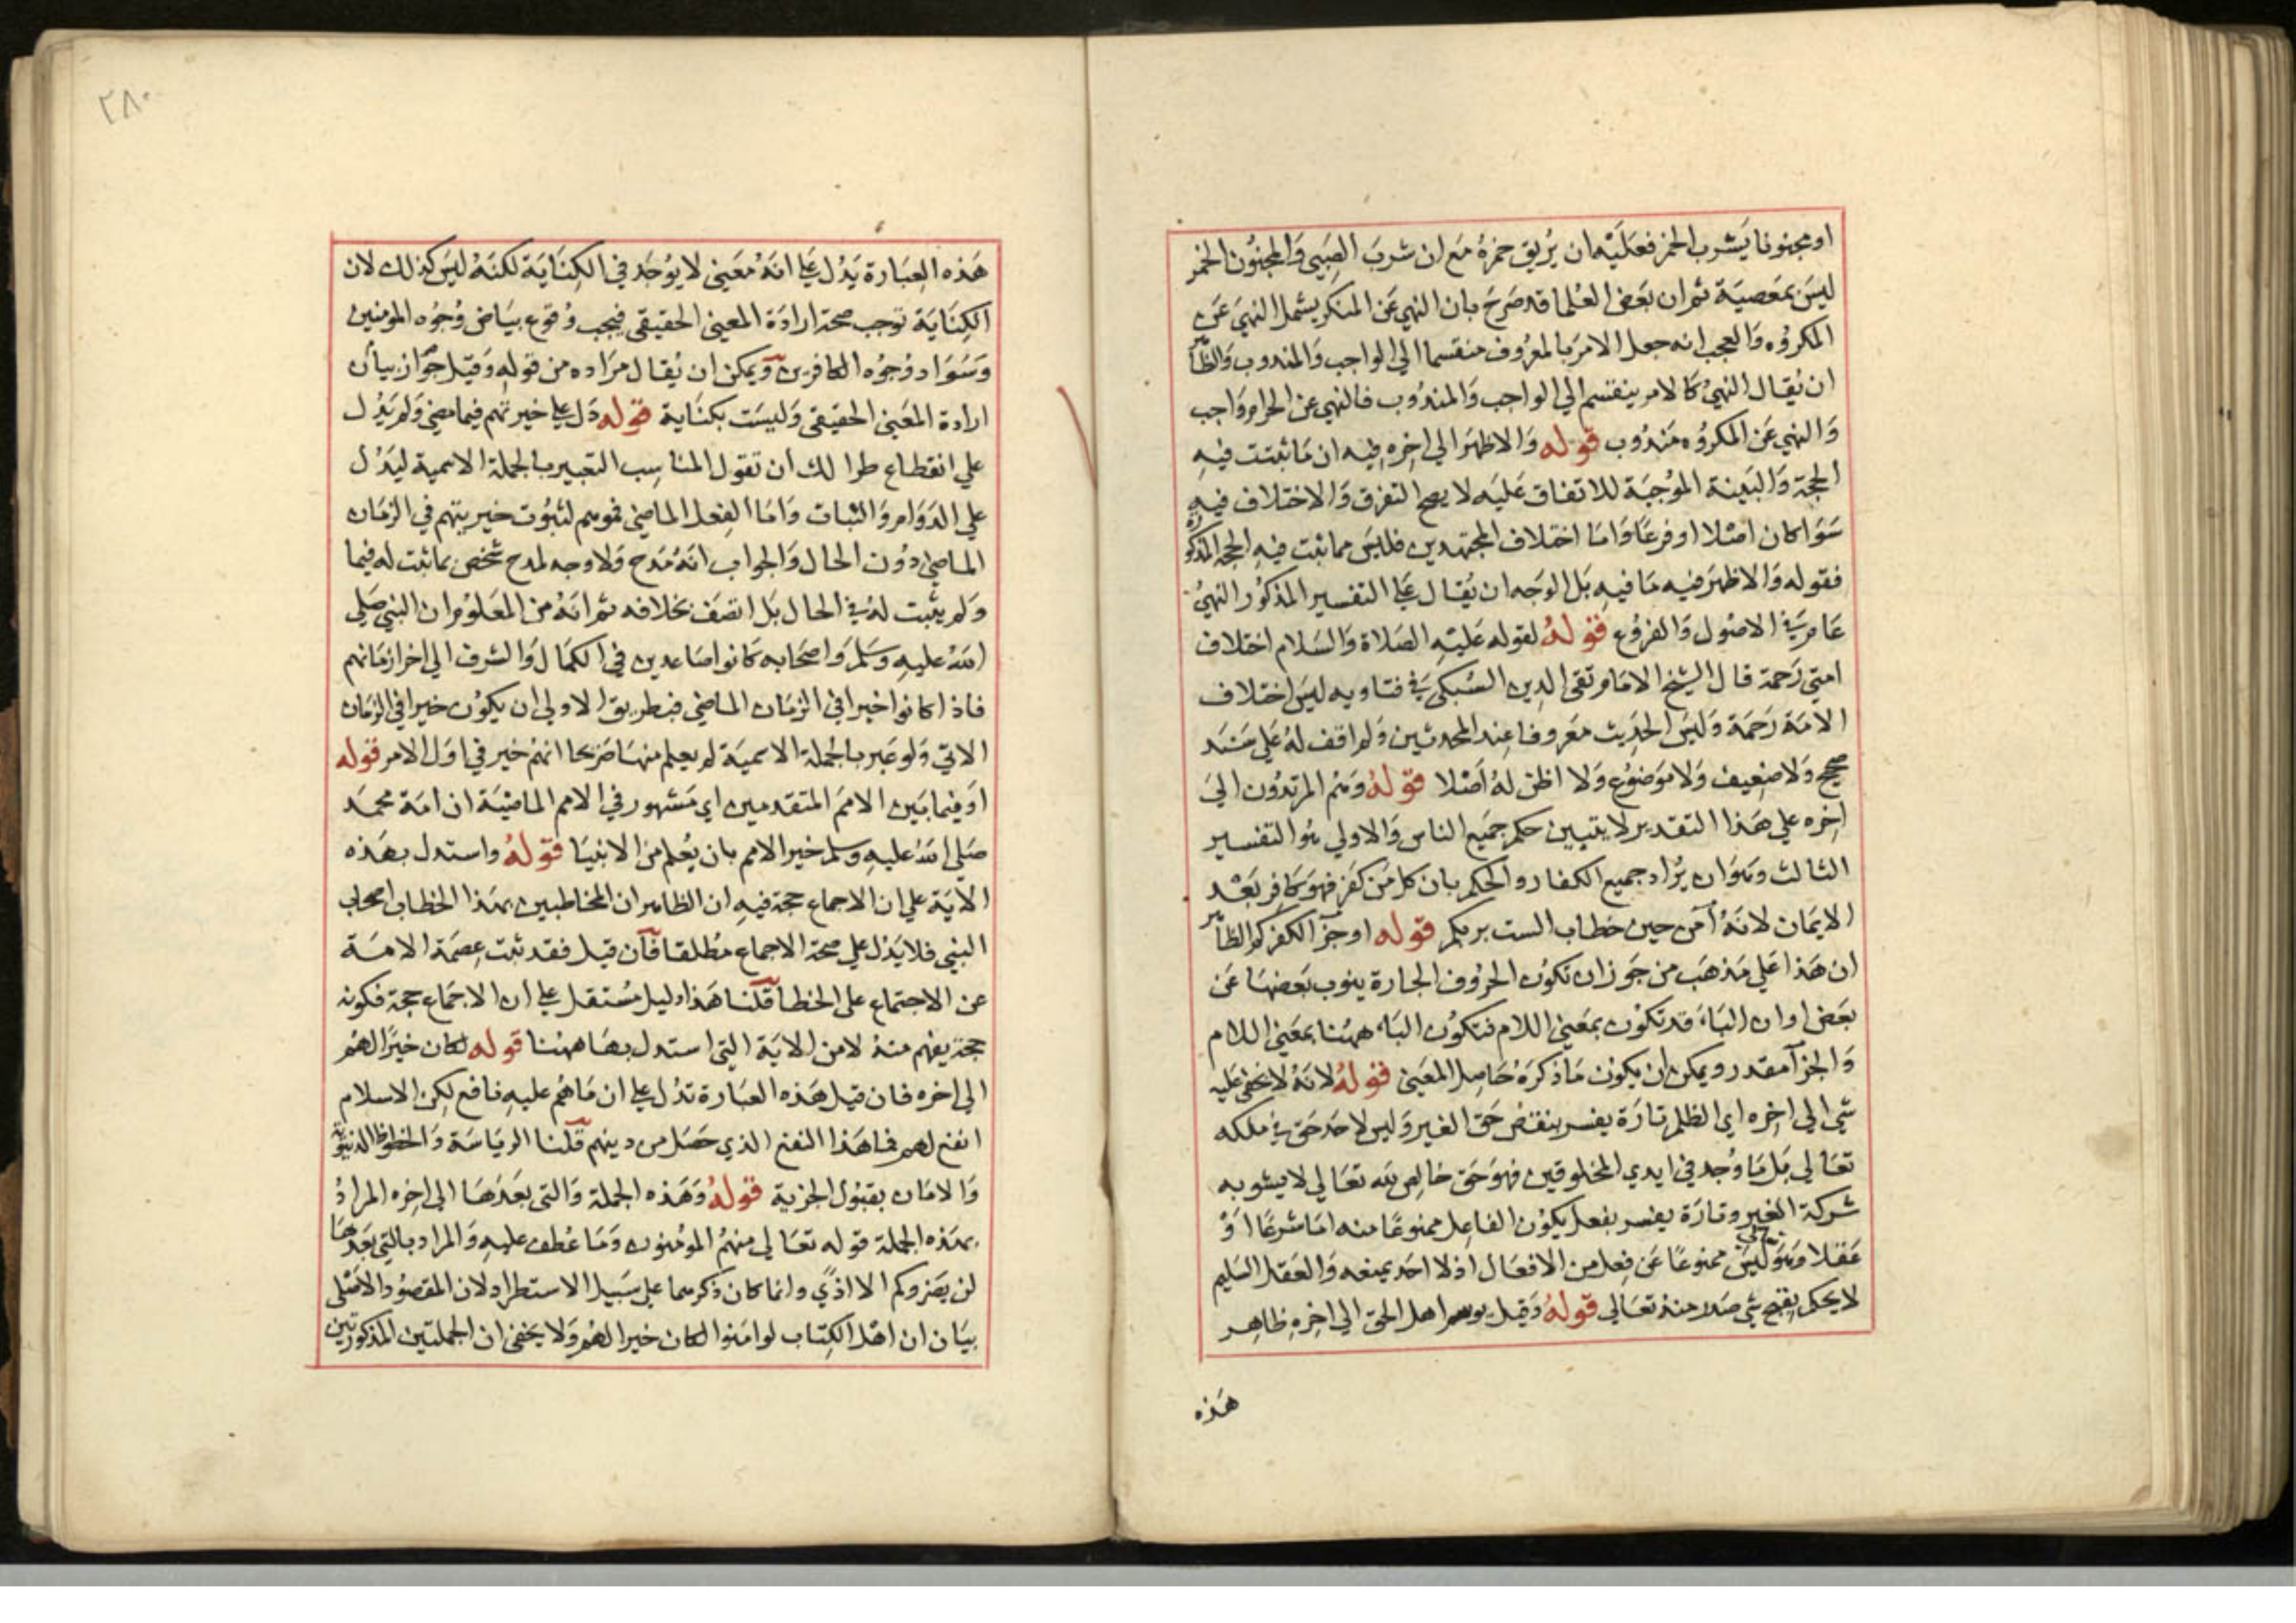 او مجنونا يشرب الخمر فعليه ان يريق خمره مع ان شرب الصبي والمجنون الخمر
ليس بمعصية ثم ان بعض العلما قد صرح بان النهي عن المنكر يشمل النهي عن
المكروه والعجب انه جعل الامر بالمعروف منقسما الي الواجب والمندوب والظاهر
ان يقال النهي كالامر ينقسم الي الواجب والمندوب فالنهي عن الحرام واجب
والنهي عن المكروه مندوب قوله والاظهر الي اخره فيه ان ما ثبتت فيه
الحجة والبينة الموجبة للاتفاق عليه لا يصح التفرق والاختلاف فيه
سوا كان اصلا او فرعا واما اختلاف المجتهدين فليس مما ثبت فيه الحجة المذكورة
فقوله والاظهر فيه ما فيه بل الوجه ان يقال علي التفسير المذكور النهي
عام في الاصول والفروع قوله لقوله عليه الصلاة والسلام اختلاف
امتي رحمة قال الشيخ الامام تقي الدين السبكي في فتاويه ليس اختلاف
الامة رحمة وليس الحديث معروفا عند المحدثين ولم اقف له علي سند
صحيح ولا ضعيف ولا موضوع ولا اظن له اصلا قوله وهم المرتدون الي
اخره علي هذا التقدير لا يتبين حكم جميع الناس والاولي هو التفسير
الثالث وهو ان يراد جميع الكفار والحكم بان كل من كفر فهو كافر بعد
الايمان لانه آمن حين خطاب الست بربكم قوله او جزآ لكفركم الظاهر
ان هذا علي مذهب من جوز ان تكون الحروف الجارة ينوب بعضها عن
بعض او ان الباء قد تكون بمعني اللام فتكون الباء ههنا بمعني اللام
والجزآ مقدر ويمكن ان يكون ما ذكره حاصل المعني قوله لانه لا يحق عليه
شي الي اخره اي الظلم تارة يفسر بنقض حق الغير وليس لاحد حق في ملكه
تعالي بل ما وجد في ايدي المخلوقين فهو حق خالص لله تعالي لا يشوبه
شركة الغير وتارة يفسر بفعل يكون الفاعل ممنوعا منه اما شرعا او
عقلا وهو تعالي ليس ممنوعا عن فعل من الافعال اذ لا احد يمنعه والعقل السليم
لا يحكم بقبح شي صدر منه تعالي قوله وقيل يوسم اهل الحق الي اخره ظاهر
هذه
٢٨٠
هذه العبارة يدل علي انه معني لا يوجد في الكناية لكنه ليس كذلك لان
الكناية توجب صحة ارادة المعني الحقيقي فيجب وقوع بياض وجوه المومنين
وسواد وجوه الكافرين ويمكن ان يقال مراده من قوله وقيل جواز بيان
ارادة المعني الحقيقي وليست بكناية قوله دل علي خيريتهم فيما مضي ولم يدل
علي انقطاع طرا لك ان تقول المناسب التعبير بالجملة الاسمية ليدل
علي الدوام والثبات واما الفعل الماضي فموهم لثبوت خيريتهم في الزمان
الماضي دون الحال والجواب انه مدح ولا وجه لمدح شخص بما ثبت له فيما
ولم يثبت له في الحال بل اتصف بخلافه ثم انه من المعلوم ان النبي صلي
الله عليه وسلم واصحابه كانوا صاعدين في الكمال والشرف الي اخر ازمانهم
فاذا كانوا خيرا في الزمان الماضي فبطريق الاولي ان يكون خيرا في الزمان
الاتي ولو عبر بالجملة الاسمية لم يعلم منها صريحا انهم خير في اول الامر قوله
او فيما بين الامم المتقدمين اي مشهور في الامم الماضية ان امة محمد
صلي الله عليه وسلم خير الامم بان يعلم من الانبيا قوله واستدل بهذه
الاية علي ان الاجماع حجة فيه ان الظاهر ان المخاطبين بهذا الخطاب اصحاب
النبي فلا يدل علي صحة الاجماع مطلقا فان قيل فقد ثبت عصمة الامة
عن الاجتماع علي الخطا قلنا هذا دليل مستقل علي ان الاجماع حجة فكونه
حجة يفهم منه لا من الاية التي استدل بها ههنا قوله لكان خيرا لهم
الي اخره فان قيل هذه العبارة تدل علي ان ما هم عليه نافع لكن الاسلام
انفع لهم فما هذا النفع الذي حصل من دينهم قلنا الرياسة والحظوظ الدنيوية
والامان بقبول الجزية قوله وهذه الجملة والتي بعدها الي اخره المراد
بهذه الجملة قوله تعالي منهم المومنون وما عطف عليه والمراد بالتي بعدها
لن يضروكم الا اذي وانما كان ذكرهما علي سبيل الاستطراد لان المقصود الاصلي
بيان ان اهل الكتاب لو امنوا لكان خيرا لهم ولا يخفي ان الجملتين المذكورتين